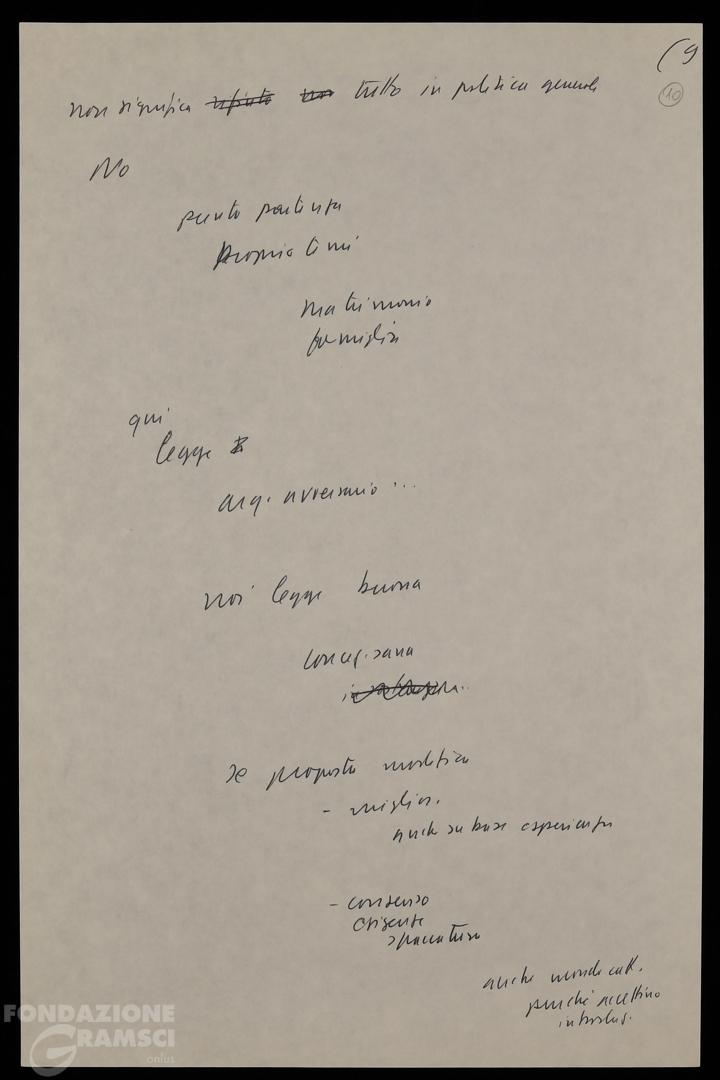 (9
10
non significa rifiuto non tutto in politica generale
No
punto partenza
propria
matrimonio
famiglia
qui
legge
arg. avversario ...
noi legge buona
concez. sana
se proposta modifica
- miglior.
anche su base esperienza
- consenso
evitare
spaccatura
anche mondo catt.
purché accettino
introduz.
FONDAZIONE
GRAMSCI
onlus